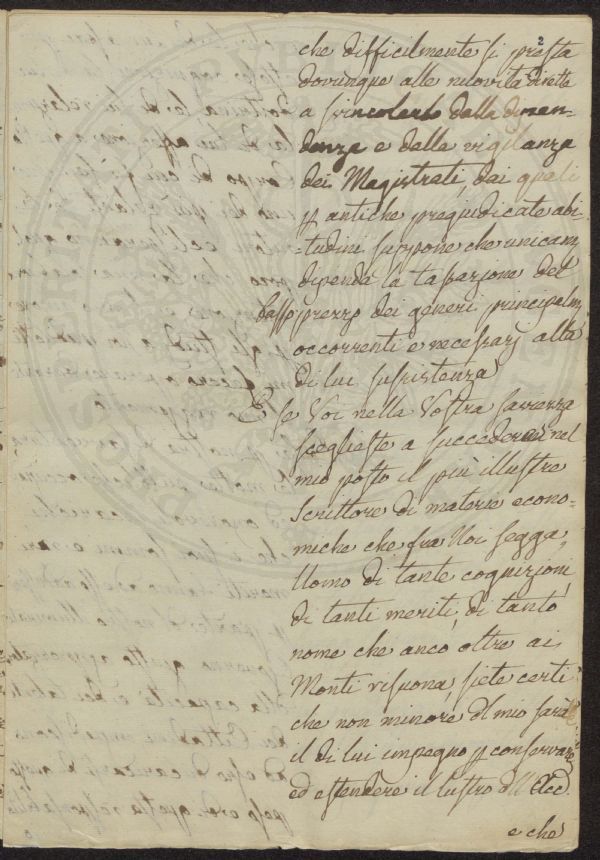 2
che difficilmente si presta
dovunque alle nuovità dirette
a svincolarlo dalla dipen=
denza e dalla vigilanza
dei Magistrati, dai quali
p antiche pregiudicate abi
=tudini suppone che unicam
dipenda la tassazione del
basso prezzo dei generi principalm
occorrenti e necessarj alla
di lui sussistenza
E se Voi nella Vostra savezza
sceglieste a succedermi nel
mio posto il più illustre
Scrittore di materie econo=
miche che fra Noi segga,
Uomo di tante cognizioni
di tanti meriti, di tanto
nome che anco oltre ai
Monti risuona, siete certi
che non minore dl mio sarà
il di lui impegno p conservare
ed estendere il lustro dll' Acc.
e che